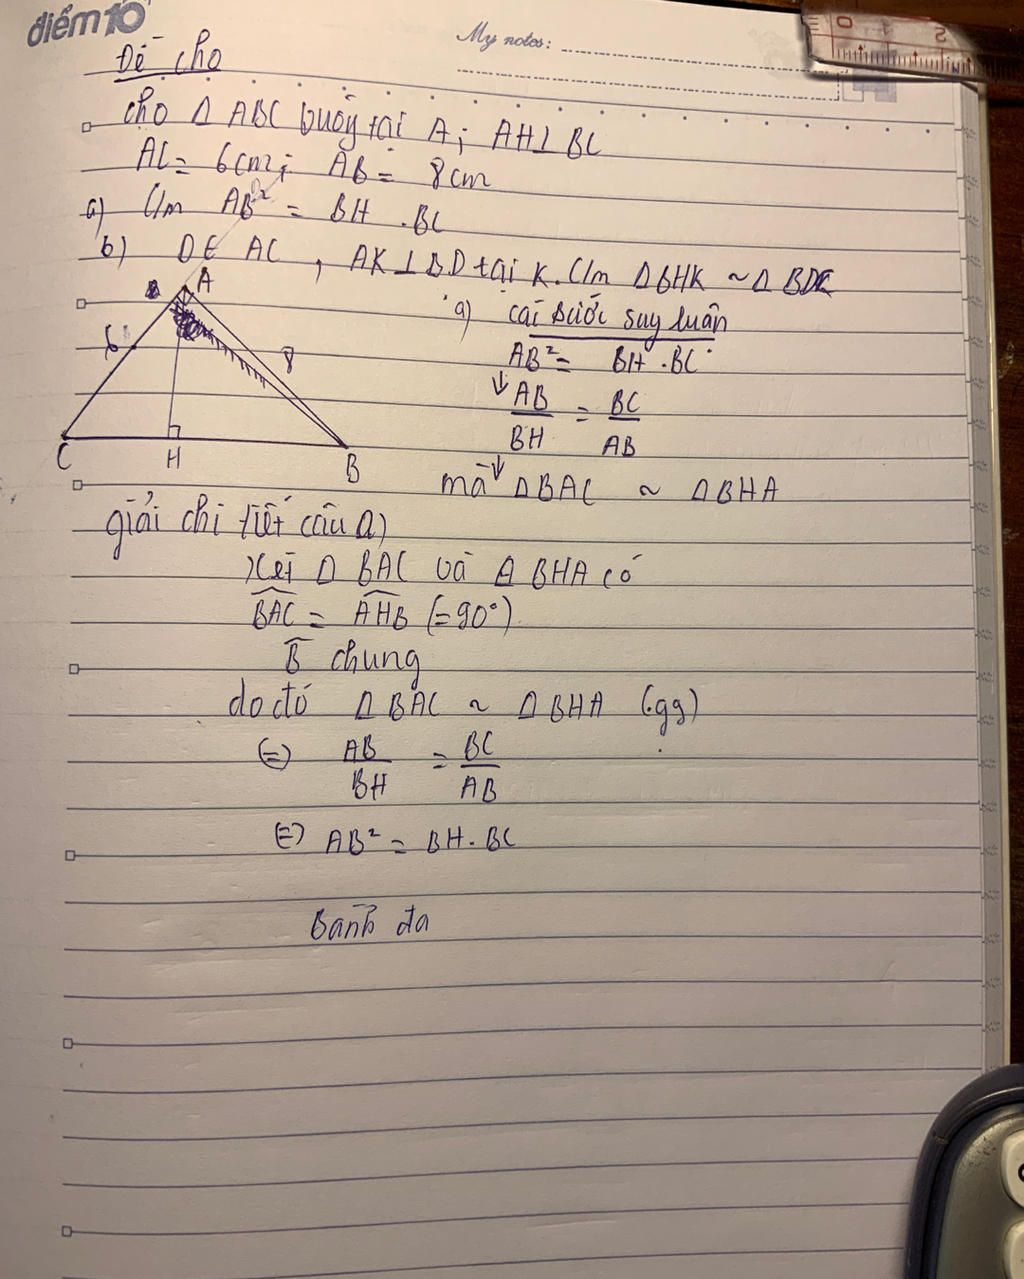 điểm 10
My notes:
Đề cho
cho Δ ABC vuông tại A; AH⊥BC
AC= 6cm; AB= 8cm
a) C/m AB² = BH .BC
b) D∈ AC , AK⊥BD tại K. C/m ΔBHK ~ Δ BDC
A
6
8
C
H
B
a) cái bước suy luận
AB² = BH .BC
↓ AB/BH = BC/AB
mà ↓ ΔBAC ~ ΔBHA
giải chi tiết câu a)
Xét Δ BAC và Δ BHA có
BAC = AHB (=90°)
B chung
do đó Δ BAC ~ Δ BHA (gg)
(=) AB/BH = BC/AB
(=) AB² = BH. BC
Bánh đa
0
2